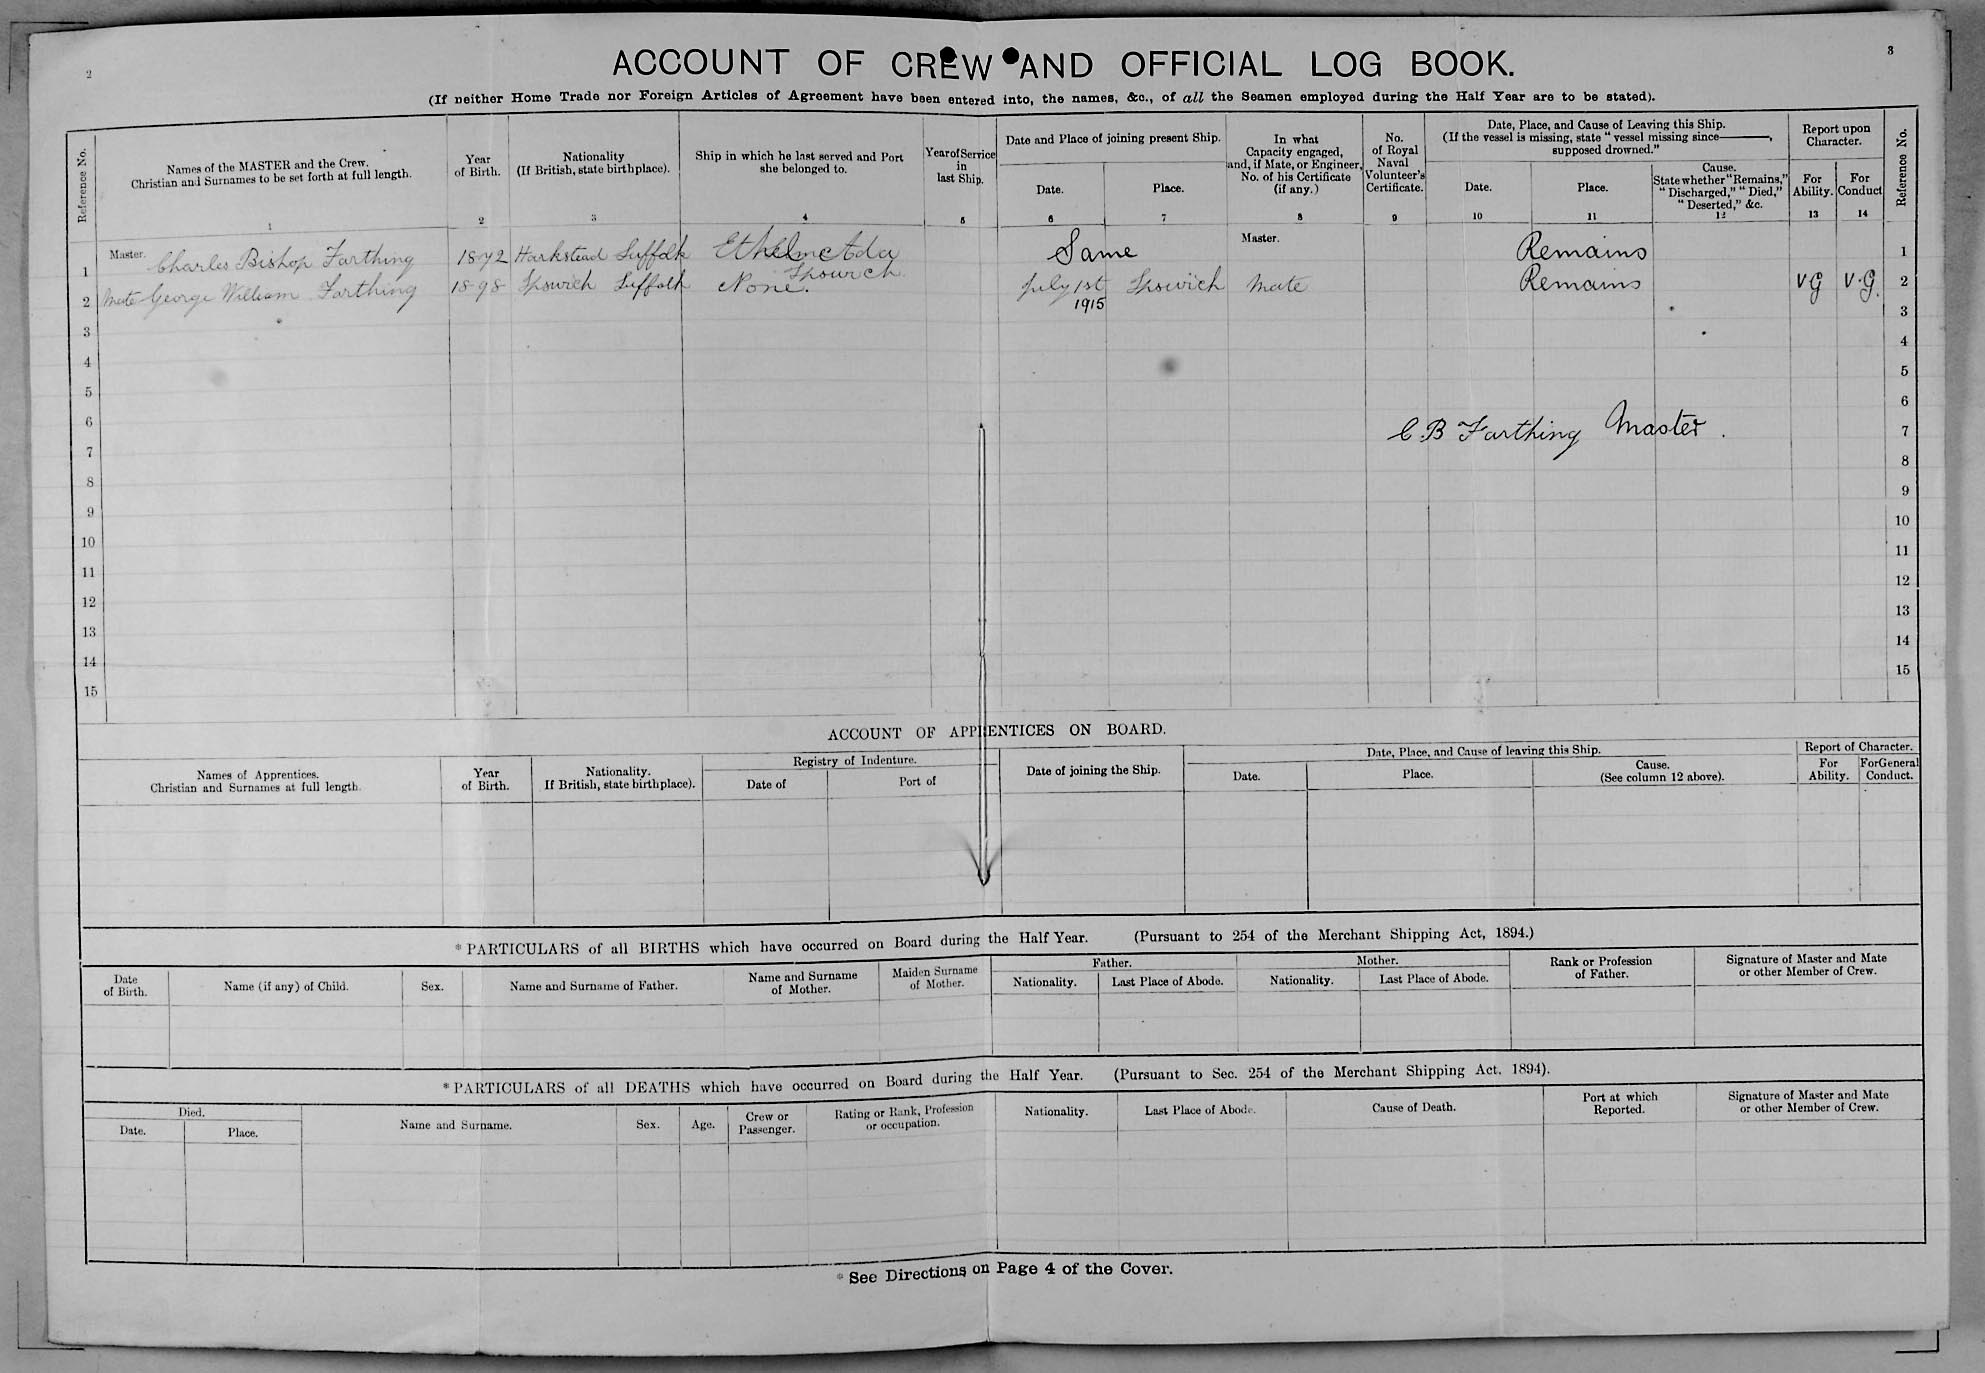 2
3
ACCOUNT OF CREW AND OFFICIAL LOG BOOK.
(If neither Home Trade nor Foreign Articles of Agreement have been entered into, the names, &c., of all the Seamen employed during the Half Year are to be stated).
Reference No.
Names of the MASTER and the Crew.
Christian and Surnames to be set forth at full length.
1
Year
of Birth.
2
Nationality
(If British, state birthplace).
3
Ship in which he last served and Port
she belonged to.
4
Year of Service
in
last Ship.
5
Date and Place of joining present Ship.
Date.
6
Place.
7
In what
Capacity engaged,
and, if Mate, or Engineer,
No. of his Certificate
(if any.)
8
No.
of Royal
Naval
Volunteer's
Certificate.
9
Date, Place, and Cause of Leaving this Ship.
(If the vessel is missing, state "vessel missing since———,
supposed drowned."
Date.
10
Place.
11
Cause.
State whether "Remains,"
"Discharged," "Died,"
"Deserted," &c.
12
Report upon
Character.
For
Ability.
13
For
Conduct
14
Reference No.
1 Master. Charles Bishop Farthing 1872 Harkstead Suffolk Ethel Ada Ipswich Same Master. Remains 1
2 Mate George William Farthing 1898 Ipswich Suffolk None. July 1st 1915 Ipswich Mate Remains VG V.G. 2
3 3
4 4
5 5
6 6
7 C B Farthing Master. 7
8 8
9 9
10 10
11 11
12 12
13 13
14 14
15 15
ACCOUNT OF APPRENTICES ON BOARD.
Names of Apprentices.
Christian and Surnames at full length.
Year
of Birth.
Nationality.
If British, state birthplace).
Registry of Indenture.
Date of
Port of
Date of joining the Ship.
Date, Place, and Cause of leaving this Ship.
Date.
Place.
Cause.
(See column 12 above).
Report of Character.
For
Ability.
For General
Conduct.
*PARTICULARS of all BIRTHS which have occurred on Board during the Half Year. (Pursuant to 254 of the Merchant Shipping Act, 1894.)
Date
of Birth.
Name (if any) of Child.
Sex.
Name and Surname of Father.
Name and Surname
of Mother.
Maiden Surname
of Mother.
Father.
Nationality.
Last Place of Abode.
Mother.
Nationality.
Last Place of Abode.
Rank or Profession
of Father.
Signature of Master and Mate
or other Member of Crew.
*PARTICULARS of all DEATHS which have occurred on Board during the Half Year. (Pursuant to Sec. 254 of the Merchant Shipping Act. 1894).
Died.
Date.
Place.
Name and Surname.
Sex.
Age.
Crew or
Passenger.
Rating or Rank, Profession
or occupation.
Nationality.
Last Place of Abode.
Cause of Death.
Port at which
Reported.
Signature of Master and Mate
or other Member of Crew.
* See Directions on Page 4 of the Cover.